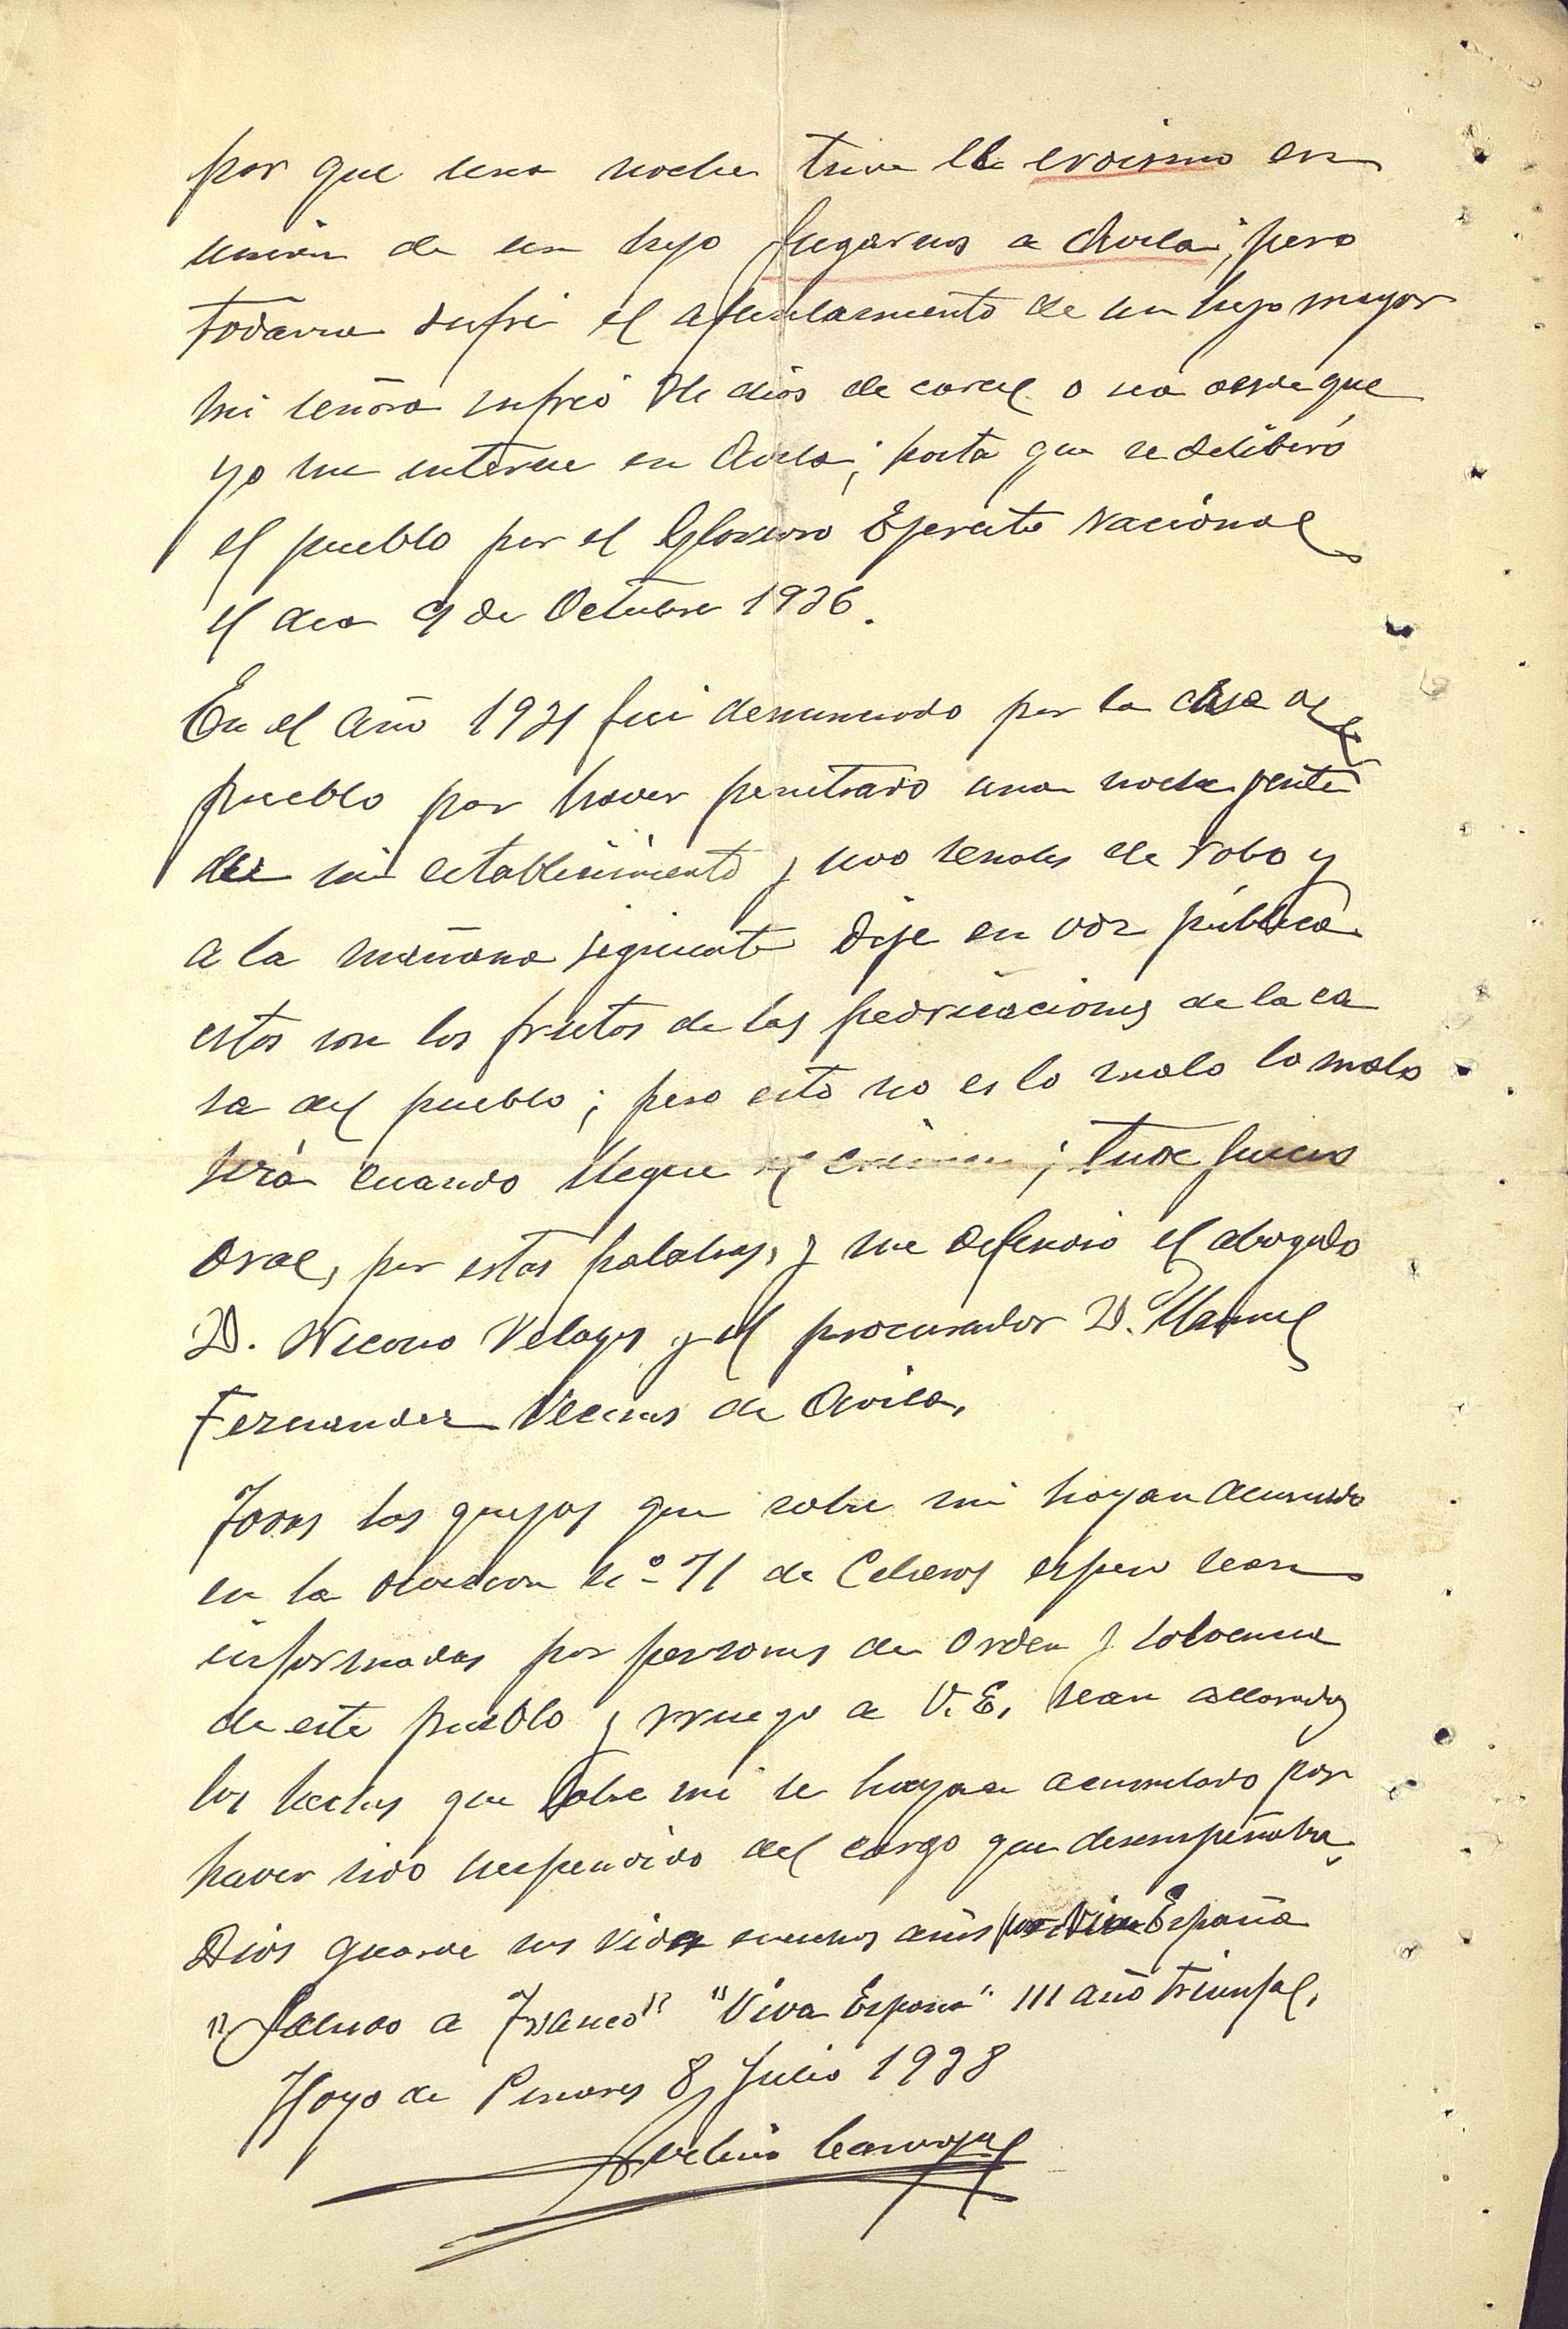 por que una noche tuve el eroismo en
union de un hijo fugarnos a Avila; pero
todavia sufri el afusilamiento de un hijo mayor
mi señora sufrió de dias de carcel o sea desde que
yo me interne en Avila; hasta que se deliberó
el pueblo por el Glorioso Ejercito Nacional
el dia 9 de Octubre 1936.
En el Año 1931 fui denunciado por la casa del
pueblo por haver penetrado una noche gente
de mi establecimiento y uvo señales de robo y
a la mañana siguiente dije en voz pública
estos son los frutos de las pedricaciones de la ca
sa del pueblo; pero esto no es lo malo lo malo
será cuando llegue el crimen; tuve juicio
oral, por estas palabras, y me defendio el abogado
D. Nicasio Velayos y el procurador D. Manuel
Fernandez de Avila.
Todas las quejas que sobre mi hayan acumulado
en la division nº 71 de Cebreros espero sean
informadas por personas de Orden y solvencia
de este pueblo y rruego a V.E. sean aclarados
los hechos que sobre mi se hayan acumulado por
haver sido suspendido del cargo que desempeñaba.
Dios guarde sus vida muchos años España
"Saludo a Franco" "Viva España" III año triunfal.
Hoyo de Pinares 8 Julio 1938
Carvajal